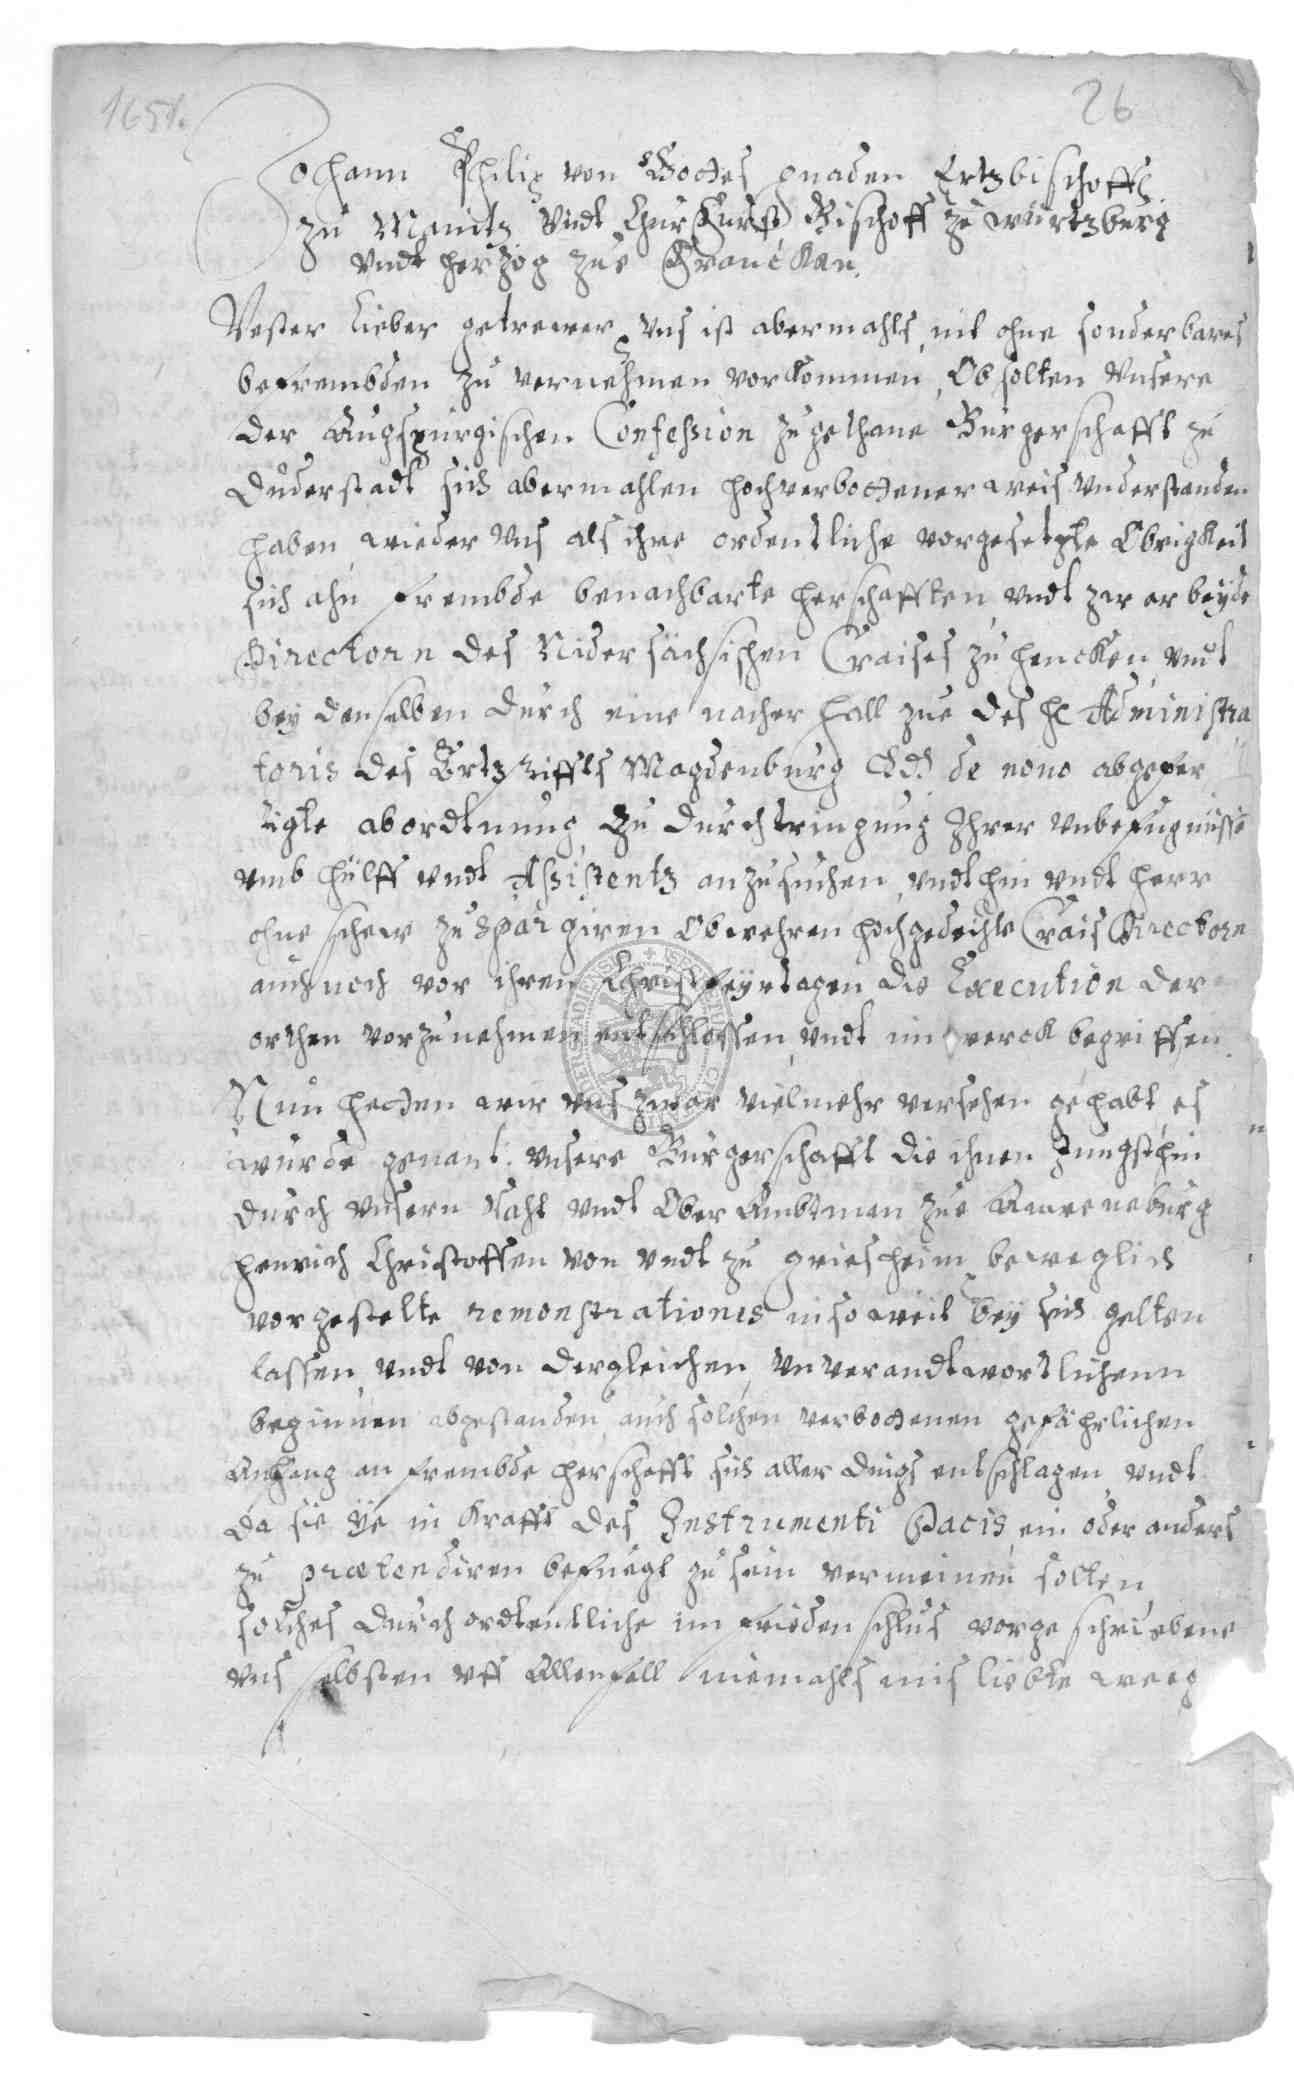 1651.
26
Johann Philip von Gottes gnaden Ertzbischoff
zu Maintz Vndt Churfürst Bischoff zu würtzburg
vndt hertzog zue Francken.
Vester Lieber getrewer, Vns ist abermahls nit ohne sonderbares
befrembden zu vernehmen vorkommen, Ob solten Vnsere
der Augspurgischen Confession zugethane Burgerschafft zu
Duderstadt sich abermahlen hochverbottener weis vnderstanden
haben wieder Vns als ihre ordentliche vorgesetzte Obrigkeit
sich ahn frembde benachbarte herschafften vndt zwar beyde
Directorn des Nidersächsischen Craises zu hencken, vndt
bey denselben durch eine nacher Hall zue des H Administra
toris des Ertzstiffts Magdenburg Ld. de novo abgefer
tigte abordtnung zu durchtringung Ihrer vnbefugnusse
vmb hülff vndt Assistentz anzusuchen, vndt hin vndt herr
ohne schew zu spargiren Ob wehren hochgedachte Crais Directorn
auch noch vor ihren Christfeyrtagen die Execution der
orthen vorzunehmen entschlossen, vndt im werck begriffen.
Nun hetten wir vns zwar vielmehr versehen gehabt, es
wurde genant. vnsere Burgerschafft die ihnen Jungsthin
durch vnsern Raht vndt Ober Ambtman zue Ameneburg
henrich Christoffen von vndt zu griesheim beweglich
vorgestelte remonstrationes insoweit bey sich gelten
lassen, vndt von dergleichen vnverandtwortlichenn
beginnen abgestanden, auch solchen verbottenen gefährlichen
Anhang an frembde herschafft sich aller dings entschlagen, vndt
da sie ye in Krafft des Instrumenti Pacis, ein oder anders
zu prætendiren befuegt zu sein vermeinen solten
solches durch ordtentliche im friedenschlus vorgeschriebene
vns selbsten vff Allenfall niemahls misliebte weeg